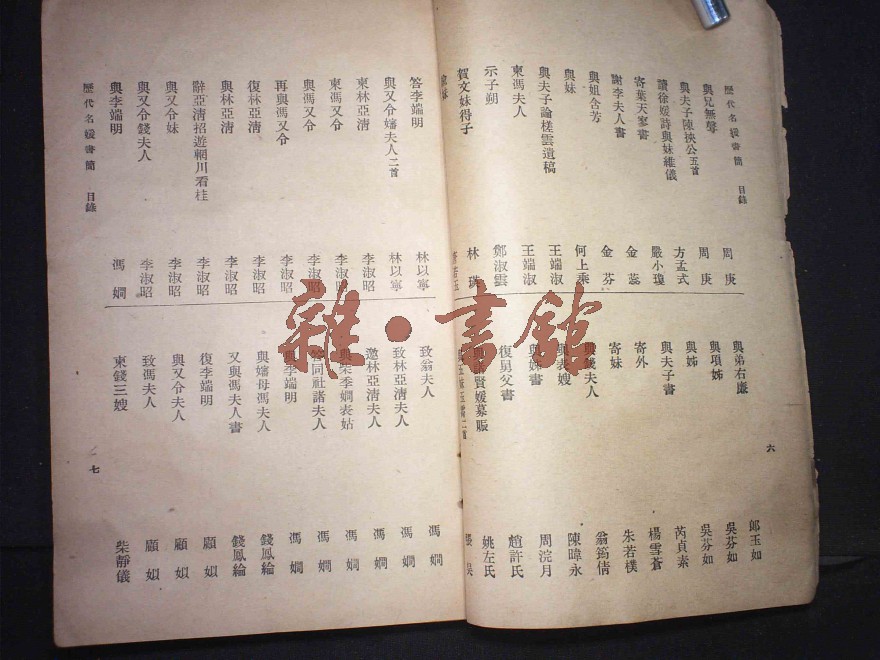 歷代名媛書簡 目錄
與兄無聲 周庚
與夫子陳挾公五首 周庚
讀徐媛詩與妹維儀 方孟式
寄葉天寥書 嚴小瓊
謝李夫人書 金蕊
與姐含芳 金芬
與妹 何上乘
與夫子論槎雲遺稿 王端淑
柬馮夫人 王端淑
示子朔 鄭淑雲
賀文妹得子 林
與弟右廉 郎玉如
與項姊 吳芬如
與姊 吳芬如
與夫子書 芮貞素
寄外 楊雪蒼
寄妹 朱若樸
與錢夫人 翁筠倩
與表嫂 陳暐永
與姊書 周浣月
復舅父書 趙許氏
賢媛募賑 姚左氏
六
答李端明 林以寧
與又令嬸夫人二首 林以寧
柬林亞清 李淑昭
柬馮又令 李淑昭
與馮又令 李淑昭
再與馮又令 李淑昭
復林亞清 李淑昭
與林亞清 李淑昭
辭亞清招遊輞川看桂 李淑昭
與又令妹 李淑昭
與又令錢夫人 李淑昭
與李端明 馮嫻
歷代名媛書簡 目錄
致翁夫人 馮嫻
致林亞清夫人 馮嫻
邀林亞清夫人 馮嫻
與柴季嫻表姑 馮嫻
答同社諸夫人 馮嫻
與李端明 馮嫻
與嬸母馮夫人 錢鳳綸
又與馮夫人書 錢鳳綸
復李端明 顧姒
與又令夫人 顧姒
致馮夫人 顧姒
柬錢三嫂 柴靜儀
七
雜·書館